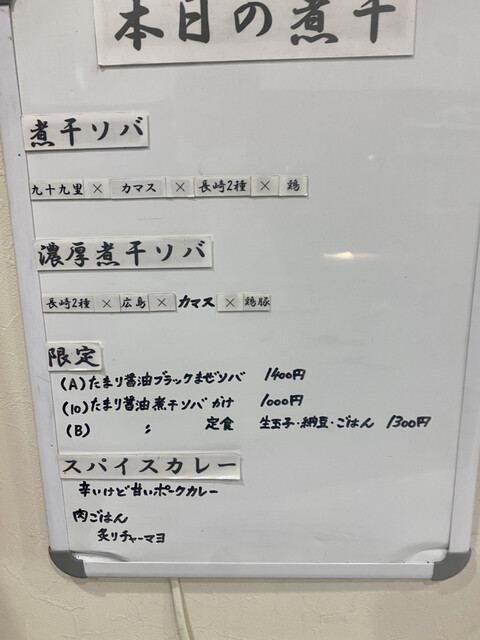 本日の煮干
煮干ソバ
九十九里 × カマス × 長崎2種 × 鶏
濃厚煮干ソバ
長崎2種 × 広島 × カマス × 鶏豚
限定
(A) たまり醤油ブラックまぜソバ 1400円
(10) たまり醤油煮干ソバ かけ 1000円
(B) 〃 定食 生玉子・納豆・ごはん 1300円
スパイスカレー
辛いけど甘いポークカレー
肉ごはん
炙りチャーマヨ